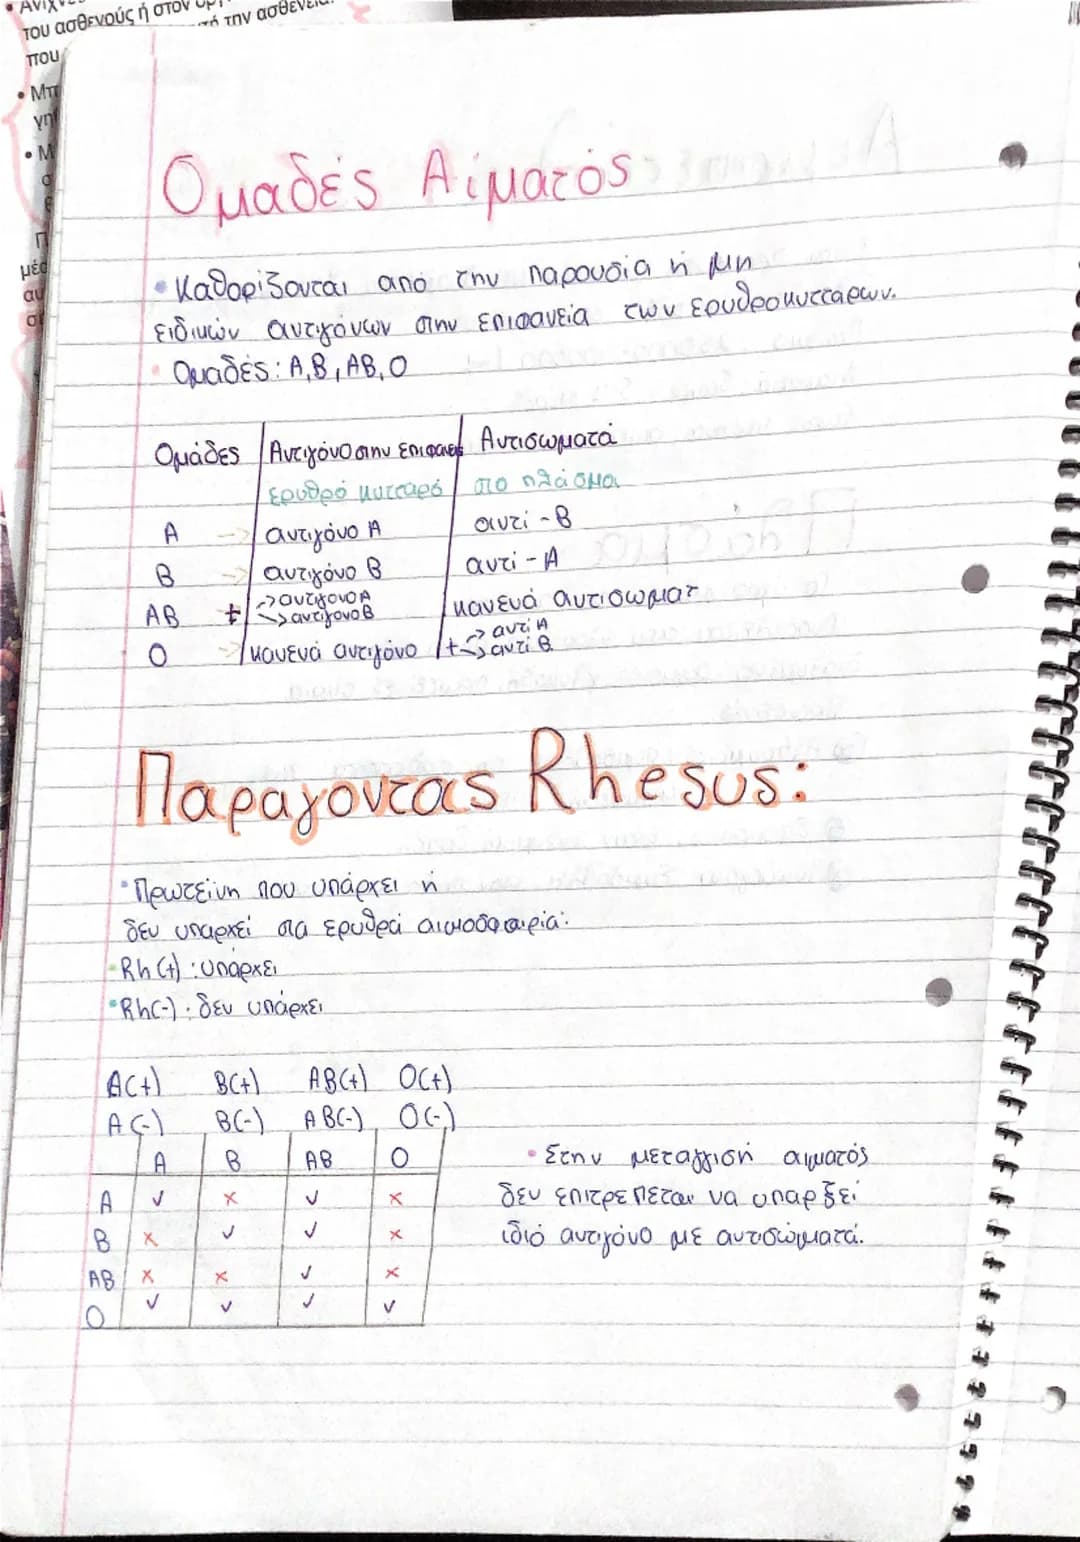 του ασθενούς ή στον
την ασθένεια.
που
• Μπ
• Μ
μέσ
Ομαδές Αίματος
• Καθορίζονται από την παρουσία ή μη
ειδικών αντιγόνων στην επιφανεία των ερυθροκυττάρων.
• Ομαδές: Α, Β, ΑΒ, Ο
Ομάδες Αντιγόνο στην επιφανει Αντισωματά
ερυθρό κυτταρό στο πλάσμα
Α → αντιγόνο Α αντί - Β
Β → αντιγόνο Β αντι - Α
ΑΒ + → αντιγονο Α → αντιγονο Β κανενά αντισωματ
Ο → κανενά αντιγόνο + → αντί Α → αντί Β
Παραγοντας Rhesus:
• Πρωτείνη που υπάρχει ή
δεν υπαρχεί στα ερυθρά αιμοσφαιρία:
• Rh (+) : υπάρχει
• Rh(-) : δεν υπάρχει
Α(+) Β(+) ΑΒ(+) Ο(+)
Α(-) Β(-) ΑΒ(-) Ο(-)
Α Β ΑΒ Ο
Α ✓ × ✓ ×
Β × ✓ ✓ ×
ΑΒ × × ✓ ×
Ο ✓ ✓ ✓ ✓
• Στην μεταγγισή αιματός
δεν επιτρεπέται να υπαρξεί
ιδιό αντιγόνο με αντισώματά.